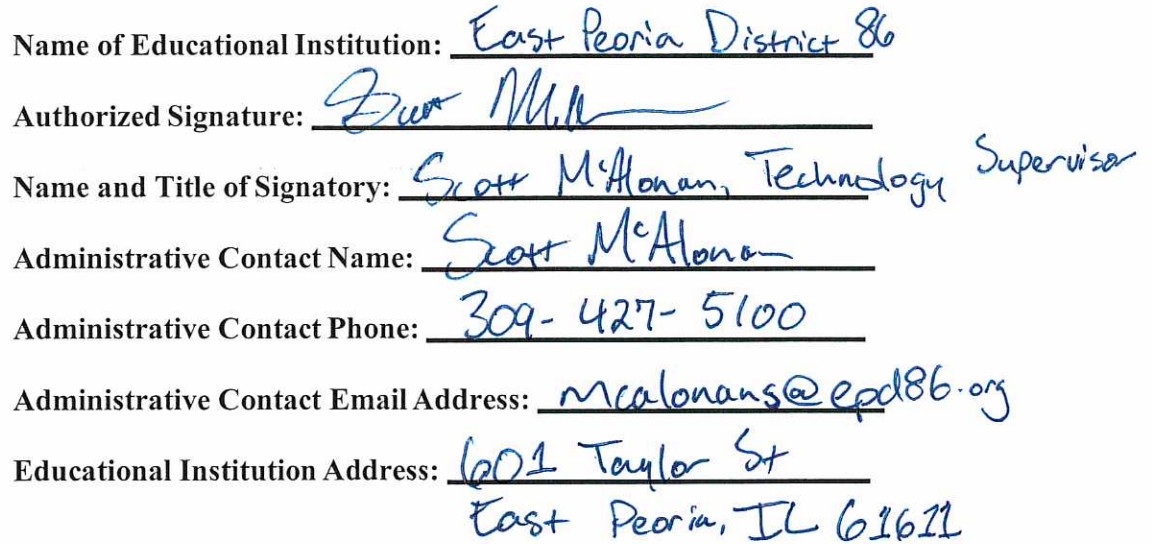 Name of Educational Institution: East Peoria District 86
Authorized Signature:
Name and Title of Signatory: Scott McAlonan, Technology Supervisor
Administrative Contact Name: Scott McAlonan
Administrative Contact Phone: 309-427-5100
Administrative Contact Email Address: mcalonans@epd86.org
Educational Institution Address: 601 Taylor St
East Peoria, IL 61611